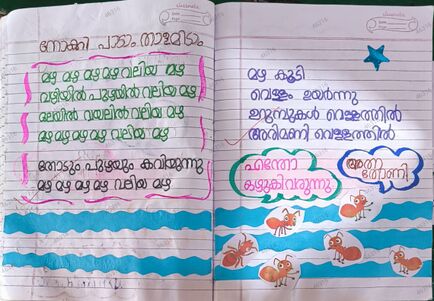 നോക്കി പാടാം താളമിടാം
മഴ മഴ മഴ മഴ വലിയ മഴ
വഴിയിൽ പുഴയിൽ വലിയ മഴ
മലയിൽ വയലിൽ വലിയ മഴ
മഴ മഴ മഴ മഴ വലിയ മഴ
തോടും പുഴയും കവിയുന്നു
മഴ മഴ മഴ മഴ വലിയ മഴ
classmate
മഴ കൂടി
വെള്ളം ഉയർന്നു
ഉറുമ്പുകൾ വെള്ളത്തിൽ
അരിമണി വെള്ളത്തിൽ
എന്തോ
ഒഴുകിവരുന്നു
അതാ
തോണി